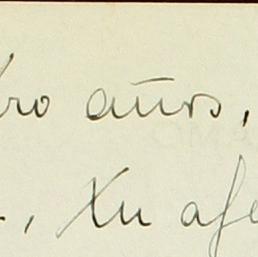 ro años,
., Xu afe